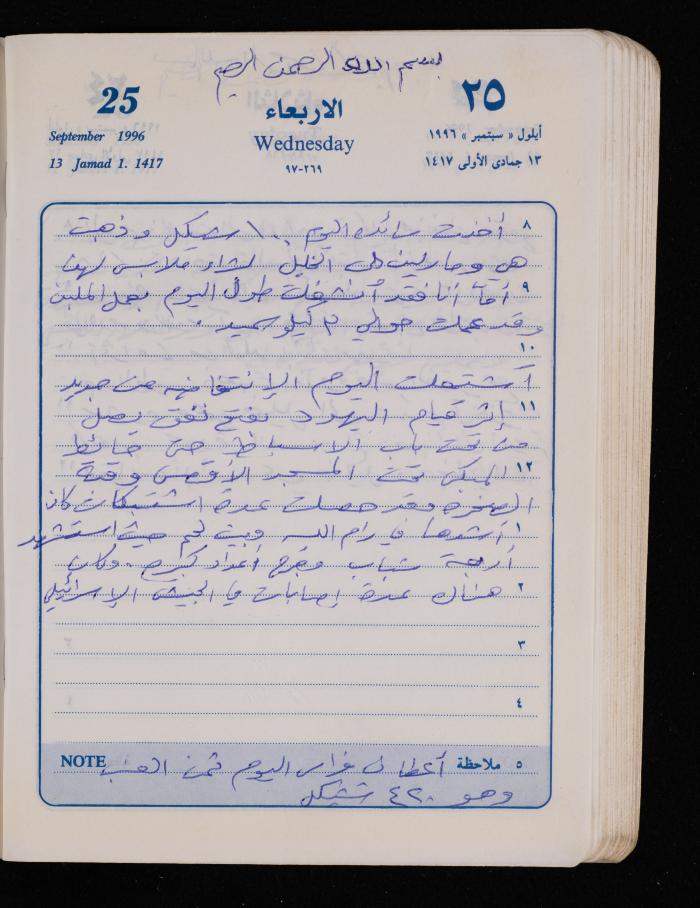 بسم الله الرحمن الرحيم
25 الاربعاء ٢٥
September 1996 Wednesday أيلول « سبتمبر » ١٩٩٦
13 Jamad 1. 1417 ٢٦٩-٩٧ ١٣ جمادى الأولى ١٤١٧
٨ أخذت رائده اليوم ١٠٠ شيكل وذهبت
هي ومارلين الى الخليل لشراء ملابس لهن
٩ أمآ أنا فقد أنشغلت طول اليوم بعمل الملبن
وقد عملت حوالي ٣ كيلو سميد .
١٠
أشتعلت اليوم الإنتفاضه من جديد
١١ إثر قيام اليهود بفتح نفق يصل
من تحت باب الاسباط حتى حائط
١٢ المبكى تحت المسجد الأقصى وقبة
الصخره وقد حصلت عدة اشتبكات كان
١ أشدها في رام الله وبيت لحم حيث استشهد
أربعة شباب وجرح أعداد كبيره . وكان
٢ هناك عدة إصابات في الجيش الإسرائيلي
٣
٤
٥ ملاحظة أعطاني فراس اليوم ثمن العنب NOTE
وهو ٤٢٠ شيكل